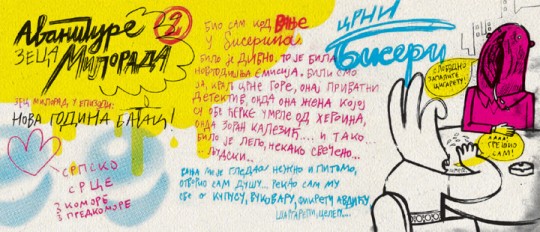 Авантуре 2
ЗЕЦА
МИЛОРАДА
ЗЕЦ МИЛОРАД У ЕПИЗОДИ:
НОВА ГОДИНА БАТАЦ!
СРПСКО
СРЦЕ
2 КОМОРЕ
3 ПРЕДКОМОРЕ
БИО САМ КОД ВАЊЕ
У БИСЕРИМА
БИЛО ЈЕ ДИВНО. ТО ЈЕ БИЛА
НОВОГОДИШЊА ЕМИСИЈА. БИЛИ СМО
ЈА, КРАЉ ЦРНЕ ГОРЕ, ОНАЈ ПРИВАТНИ
ДЕТЕКТИВ, ОНДА ОНА ЖЕНА КОЈОЈ
СУ ОБЕ ЋЕРКЕ УМРЛЕ ОД ХЕРОИНА,
ОНДА ЗОРАН КАЛЕЗИЋ.... И ТАКО
БИЛО ЈЕ ЛЕПО, НЕКАКО СВЕЧЕНО...
ЉУДСКИ...
ВАЊА МЕ ЈЕ ГЛЕДАО НЕЖНО И ПИТОМО,
ОТВОРИО САМ ДУШУ... РЕКАО САМ МУ
СВЕ О КУПУСУ, ВУКОВАРУ, ОМИРЕТИ АВДИЋУ
ШАРГАРЕПИ, ЦЕЛЕР...
ЦРНИ
Бисери
СЛОБОДНО
ЗАПАЛИТЕ
ЦИГАРЕТУ!
АААА!
ГРЕШИО
САМ!